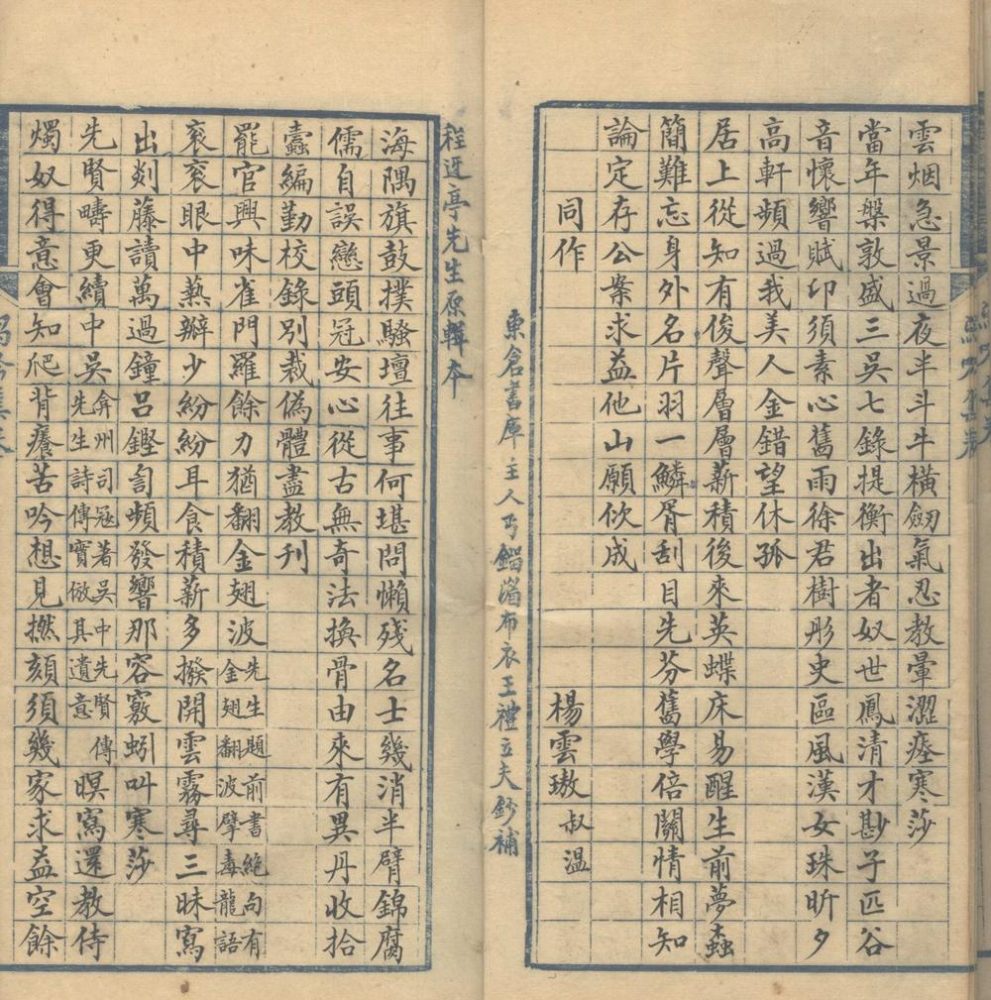 雲烟急景過夜半斗牛橫劒氣忍教暈澀瘞寒莎
當年槃敦盛三吳七錄提衡出者奴世鳳清才尠子匹谷
音懷響賦卬須素心舊雨徐君樹彤史區風漢女珠昕夕
高軒頻過我美人金錯望休孤
居上從知有俊聲層層薪積後來英蝶床易醒生前夢蟲
簡難忘身外名片羽一鱗胥刮目先芬舊學倍關情相知
論定存公案求益他山願佽成
同作 楊雲璈叔溫
東倉書庫主人丂鎦湽布衣王禮立夫鈔補
程迓亭先生原輯本
海隅旗鼓撲騷壇往事何堪問懶殘名士幾消半臂錦腐
儒自誤戀頭冠安心從古無奇法換骨由來有異丹收拾
蠹編勤校錄別裁偽體盡教刊
罷官興味雀門羅餘力猶翻金翅波先生題前書絕句有金翅翻波擘毒龍語
衮衮眼中爇瓣少紛紛耳食積薪多撥開雲霧尋三昧寫
出剡藤讀萬過鐘呂鏗訇頻發響那容竅蚓叫寒莎
先賢疇更續中吳弇州司寇著吳中先賢傳先生詩傳實倣其遺意暝寫還教侍
燭奴得意會知爬背癢苦吟想見撚頦須幾家求益空餘